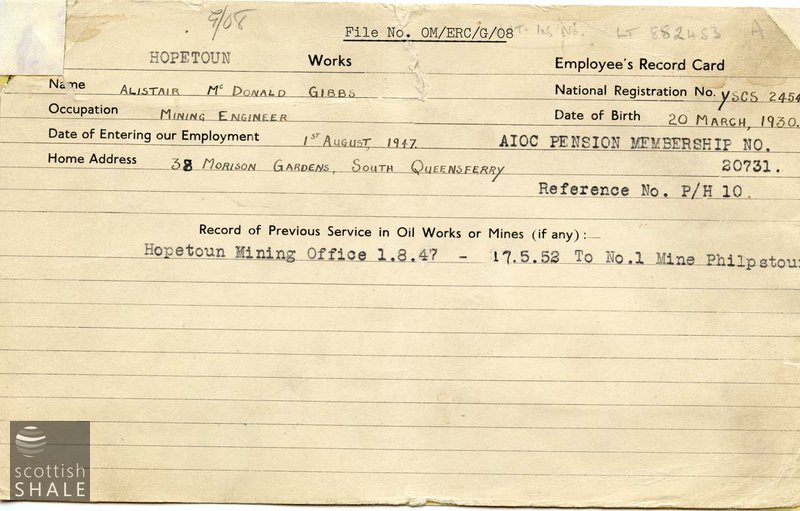 G/08
File No. OM/ERC/G/08
INS. No. LT 882453 A
HOPETOUN Works Employee's Record Card
Name ALISTAIR Mc DONALD GIBBS National Registration No. YSCS 2454
Occupation MINING ENGINEER Date of Birth 20 MARCH, 1930.
Date of Entering our Employment 1ST AUGUST, 1947. AIOC PENSION MEMBERSHIP NO.
Home Address 38 MORISON GARDENS, SOUTH QUEENSFERRY 20731.
Reference No. P/H 10.
Record of Previous Service in Oil Works or Mines (if any):—
Hopetoun Mining Office 1.8.47 - 17.5.52 To No.1 Mine Philpstoun
scottish
SHALE